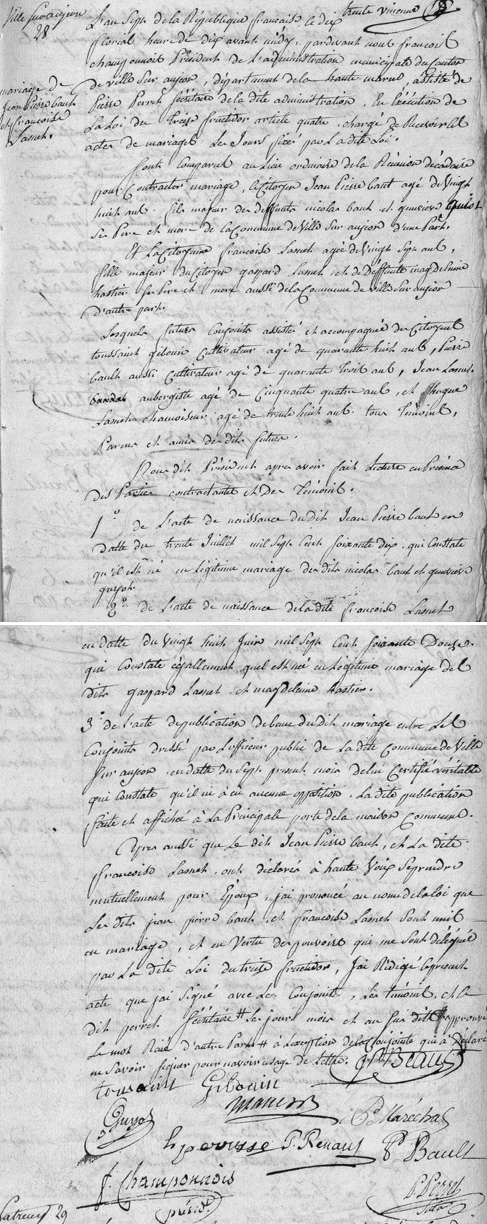 Ville sur aujon
28
mariage de
jean Pierre baut
et francoise
Lasnet.
trente
L'an Sept de la République francaise le dix
floreal heure de dix avant midy, pardevant nous francois
champonnois President de l'administration municipale du canton
de ville sur aujon, département de la haute marne, assisté de
Pierre Perret Sécrétaire de la dite administration, En Exécution de
La Loi du treize fructidor article quatre, chargé de Recevoir les
actes de mariages Les Jours fixés par La dite Loi.
Sont Comparus au Lieu ordinaire de la Reunion décadaire
pour Contracter mariage, le Citoyen Jean Pierre baut agé de Vingt
huit ans, fils majeur des deffunts nicolas baut et genevieve Guiot
Ses Pere et mere de la Commune de Ville Sur aujon d'une Part.
Et La Citoyenne francoise Lasnet agée de Vingt Sept ans,
fille majeur du Citoyen gaspard Lasnet, et de deffunte magdeleine
hastier Ses Pere et mere aussi de la Commune de Ville Sur aujon
d'autre part.
Lesquels futurs Conjoints assistés et accompagnés des Citoyens
toussaint gelouin Cultivateur agé de quarante huit ans, Pierre
bault aussi Cultivateur agé de quarante trois ans, Jean Lasnet
aubergiste agé de Cinquante quatre ans, et
Lasnet Chamoiseur agé de trente huit ans tous Témoins,
Parens et amis des dits futurs.
Nous dit Président apres avoir fait Lecture en Présence
des Parties contractantes et des Témoins.
1° de l'acte de naissance du dit Jean Pierre baut en
datte du trente Juillet mil Sept Cent Soixante dix, qui Constate
qu'il est né en légitime mariage des dits nicolas baut et genevieve
guyot.
2° de l'acte de naissance de la dite francoise Lasnet
en datte du vingt huit Juin mil Sept Cent Soixante Douze
qui Constate égallement quel est née en Légitime mariage des
dits gaspard Lasnet, et magdeleine hastier.
3° de l'acte de publication de bans du dit mariage entre Les
Conjoints dressé par L'officier public de La dite Commune de Ville
Sur aujon en datte du Sept present mois de lui Certifié véritable
qui Constate qu'il n'i à eu aucune opposition. La dite publication
faite et affichée a La Principale porte de la maison Commune.
Apres aussi que Le dit Jean Pierre baut, et La dite
francoise Lasnet ont déclarés à haute Voix Se prendre
mutuellement pour Epoux, j'ai prononcé au nom de la loi que
Les dits jean pierre baut, et francoise Lasnet Sont unis
en mariage, et en Vertu des pouvoirs qui me Sont délégués
par La dite Loi du treize fructidor, J'ai Rédigé le present
acte que j'ai Signé avec Les Conjoints, Les témoins, et le
dit perret Sécrétaire # Les jours mois et an Susdits approuvé
Le mot Raié d'autre Part # à l'exception de la Conjointe qui à déclaré
ne Savoir Signer pour n'avoir usage de Lettre.
toussaint Gelouin
Guyot
P. Maréchal
P. Renaut
P. Bault
f. Champonnois
présid.
P. Perret
Secre
29